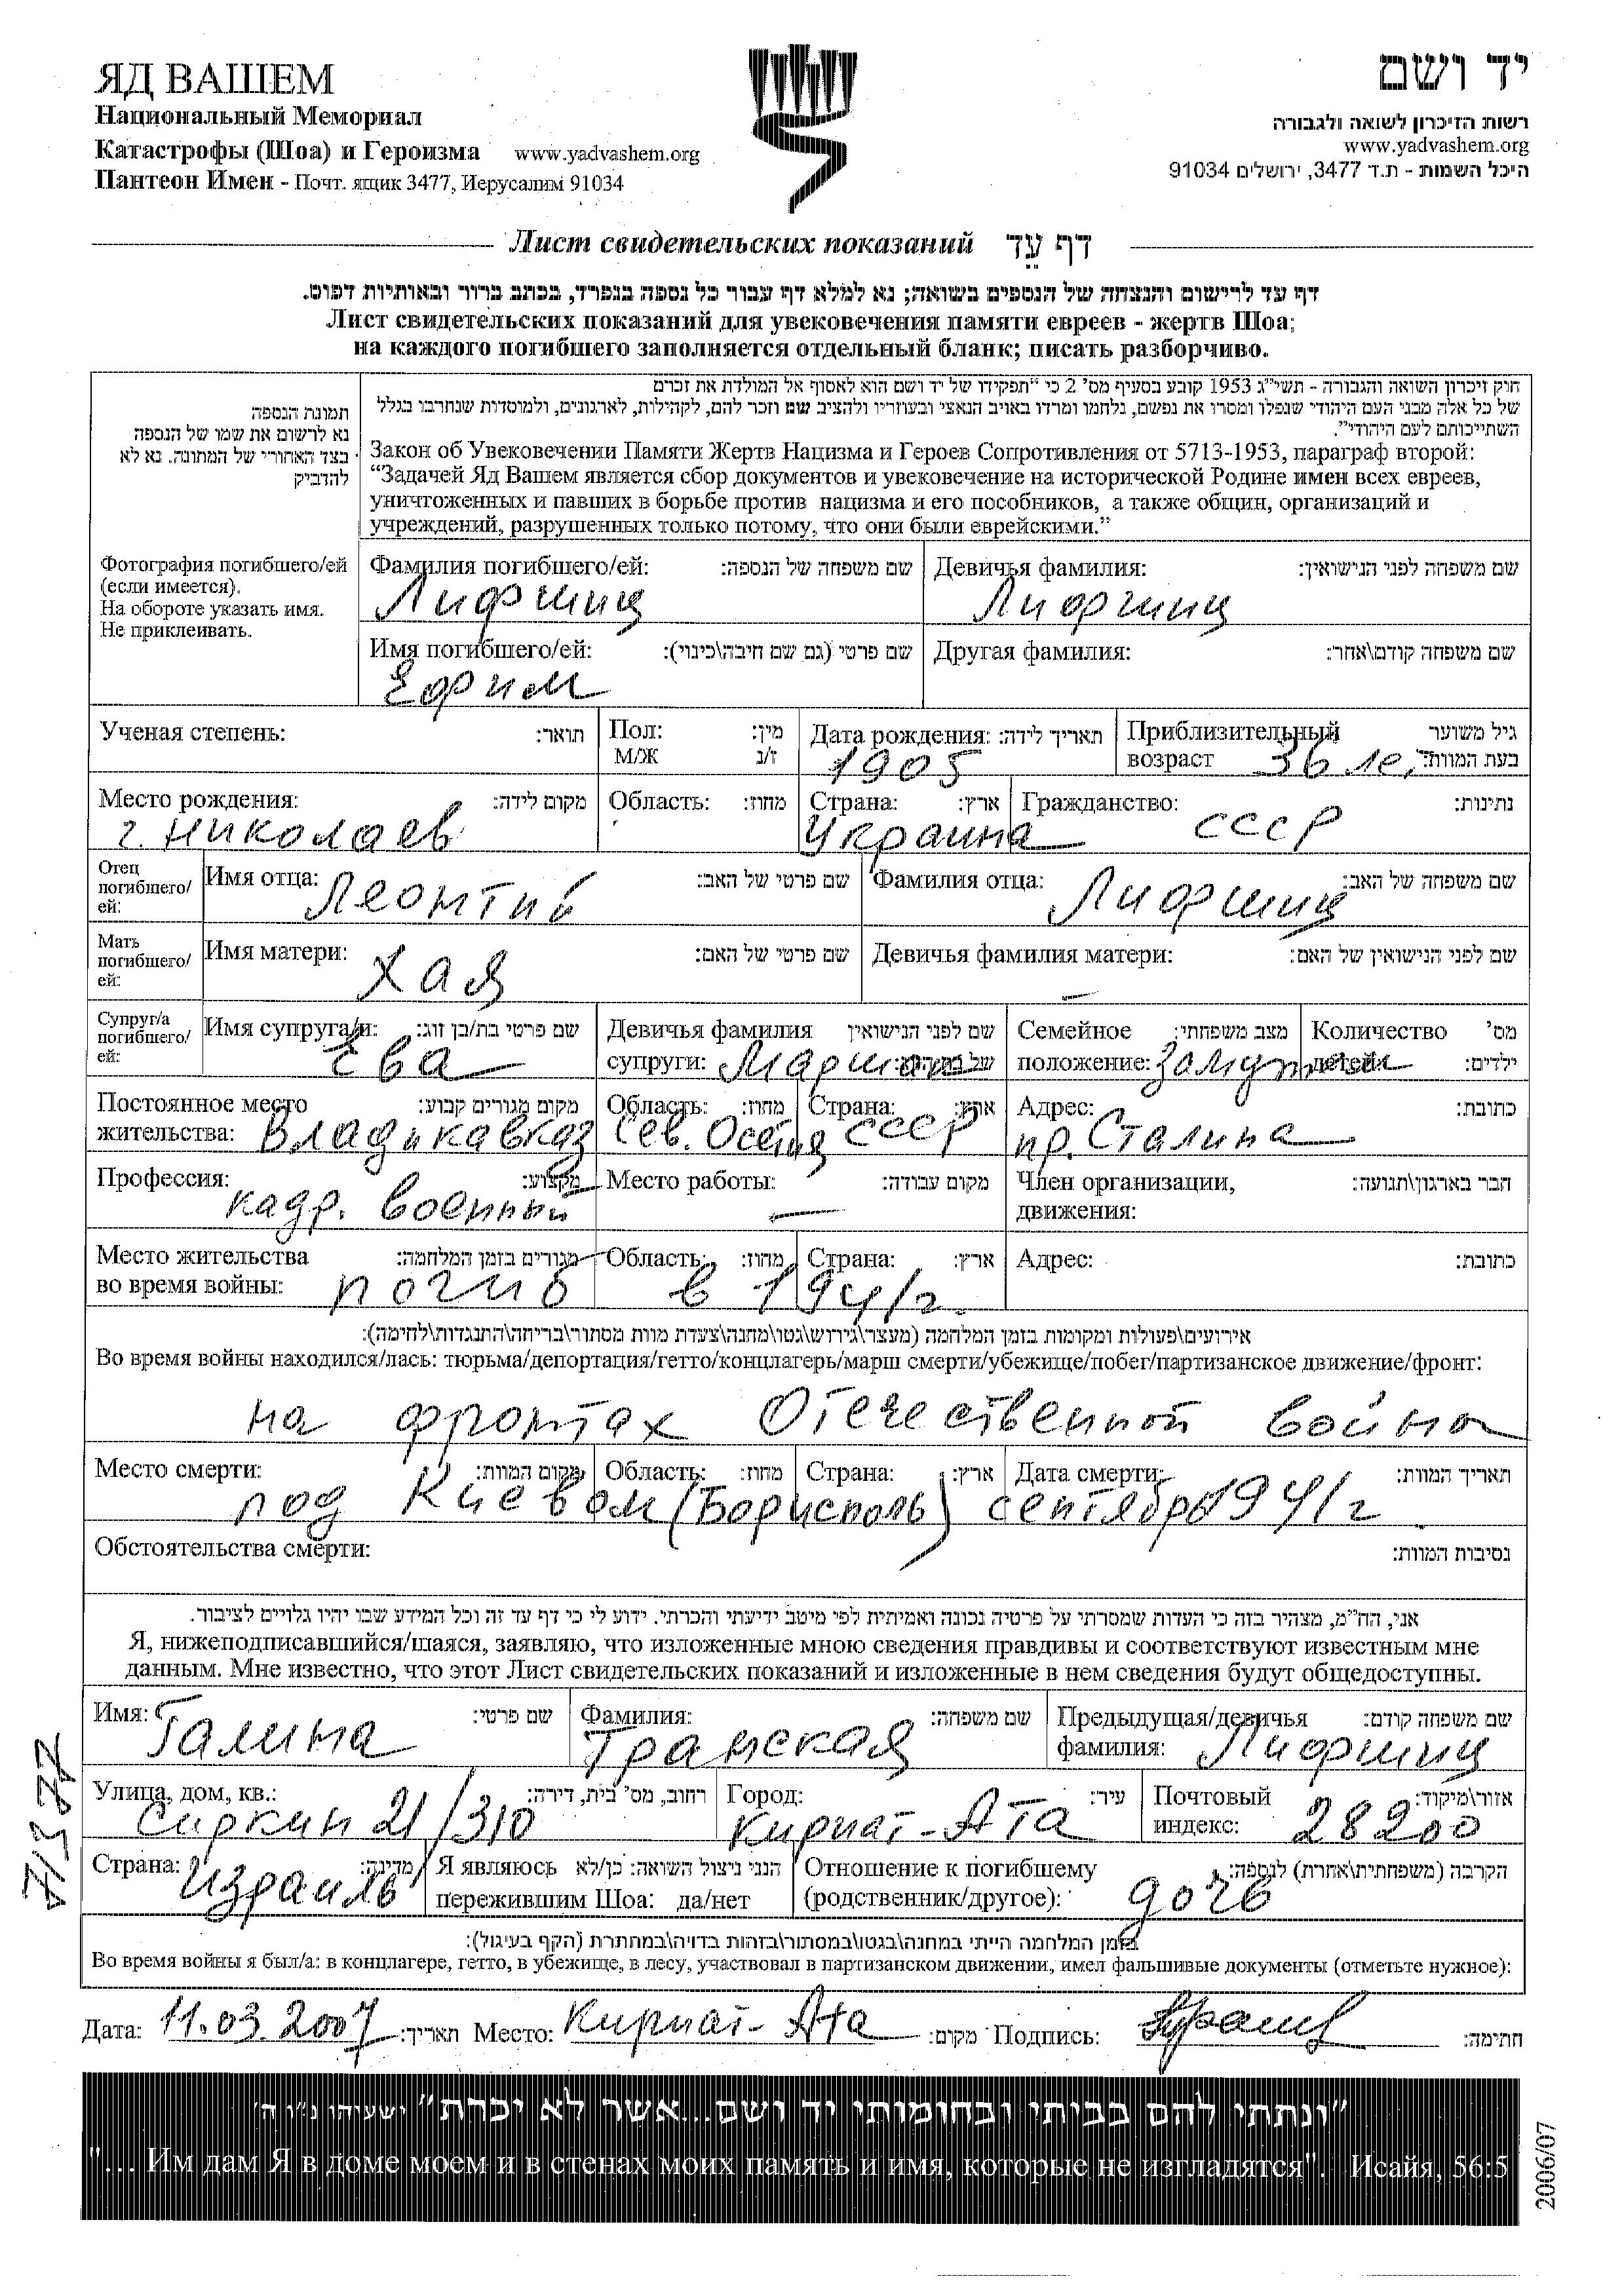 ЯД ВАШЕМ
Национальный Мемориал
Катастрофы (Шоа) и Героизма www.yadvashem.org
Пантеон Имен - Почт. ящик 3477, Иерусалим 91034
יד ושם
רשות הזיכרון לשואה ולגבורה
www.yadvashem.org
היכל השמות - ת.ד 3477, ירושלים 91034
Лист свидетельских показаний דף עֵד
דף עד לרישום והנצחה של הנספים בשואה; נא למלא דף עבור כל נספה בנפרד, בכתב ברור ובאותיות דפוס.
Лист свидетельских показаний для увековечения памяти евреев - жертв Шоа;
на каждого погибшего заполняется отдельный бланк; писать разборчиво.
תמונת הנספה
נא לרשום את שמו של הנספה
בצד האחורי של התמונה. נא לא
להדביק
Фотография погибшего/ей
(если имеется).
На обороте указать имя.
Не приклеивать.
חוק זיכרון השואה והגבורה - תשי"ג 1953 קובע בסעיף מס' 2 כי "תפקידו של יד ושם הוא לאסוף אל המולדת את זכרם
של כל אלה מבני העם היהודי שנפלו ומסרו את נפשם, נלחמו ומרדו באויב הנאצי ובעוזריו ולהציב שם וזכר להם, לקהילות, לארגונים, ולמוסדות שנחרבו בגלל
השתייכותם לעם היהודי".
Закон об Увековечении Памяти Жертв Нацизма и Героев Сопротивления от 5713-1953, параграф второй:
“Задачей Яд Вашем является сбор документов и увековечение на исторической Родине имен всех евреев,
уничтоженных и павших в борьбе против нацизма и его пособников, а также общин, организаций и
учреждений, разрушенных только потому, что они были еврейскими.”
Фамилия погибшего/ей: שם משפחה של הנספה: Девичья фамилия: שם משפחה לפני הנישואין:
Лифшиц Лифшиц
Имя погибшего/ей: שם פרטי (גם שם חיבה\כינוי): Другая фамилия: שם משפחה קודם\אחר:
Ефим
Ученая степень: תואר: Пол: מין: Дата рождения: תאריך לידה: Приблизительный גיל משוער
М/Ж ז/נ 1905 возраст 36 ле. בעת המוות:
Место рождения: מקום לידה: Область: מחוז: Страна: ארץ: Гражданство: נתינות:
г. Николаев Украина СССР
Отец
погибшего/
ей:
Имя отца: Леонтий שם פרטי של האב: Фамилия отца: Лифшиц שם משפחה של האב:
Мать
погибшего/
ей:
Имя матери: Хая שם פרטי של האם: Девичья фамилия матери: – שם לפני הנישואין של האם:
Супруг/а
погибшего/
ей:
Имя супруга/и: שם פרטי בת/בן זוג: Девичья фамилия שם לפני הנישואין Семейное מצב משפחתי: Количество מס'
Ева супруги: положение: детей: ילדים:
Постоянное место מקום מגורים קבוע: Область: מחוז: Страна: ארץ: Адрес: כתובת:
жительства: Владикавказ Сев. Осетия СССР пр. Сталина
Профессия: מקצוע: Место работы: מקום עבודה: Член организации, חבר בארגון\תנועה:
кадр. военный — движения:
Место жительства מגורים בזמן המלחמה: Область: מחוז: Страна: ארץ: Адрес: כתובת:
во время войны: погиб в 1941 г.
אירועים\פעולות ומקומות בזמן המלחמה (מעצר\גירוש\גטו\מחנה\צעדת מוות מסתור\בריחה\התנגדות\לחימה):
Во время войны находился/лась: тюрьма/депортация/гетто/концлагерь/марш смерти/убежище/побег/партизанское движение/фронт:
на фронтах Отечественной войны
Место смерти: מקום המוות: Область: מחוז: Страна: ארץ: Дата смерти: תאריך המוות:
под Киевом (Борисполь) сентябрь 1941 г.
Обстоятельства смерти: נסיבות המוות:
אני, הח"מ, מצהיר בזה כי העדות שמסרתי על פרטיה נכונה ואמיתית לפי מיטב ידיעתי והכרתי. ידוע לי כי דף עד זה וכל המידע שבו יהיו גלויים לציבור.
Я, нижеподписавшийся/шаяся, заявляю, что изложенные мною сведения правдивы и соответствуют известным мне
данным. Мне известно, что этот Лист свидетельских показаний и изложенные в нем сведения будут общедоступны.
Имя: שם פרטי: Фамилия: שם משפחה: Предыдущая/девичья שם משפחה קודם:
Галина Транская фамилия: Лифшиц
Улица, дом, кв.: רחוב, מס' בית, דירה: Город: עיר: Почтовый אזור\מיקוד:
Сиркин 21/310 Кириат-Ата индекс: 28200
Страна: מדינה: Я являюсь הנני ניצול השואה: כן/לא Отношение к погибшему הקרבה (משפחתית\אחרת) לנספה:
Израиль пережившим Шоа: да/нет (родственник/другое): дочь
בזמן המלחמה הייתי במחנה\בגטו\במסתור\בזהות בדויה\במחתרת (הקף בעיגול):
Во время войны я был/а: в концлагере, гетто, в убежище, в лесу, участвовал в партизанском движении, имел фальшивые документы (отметьте нужное):
Дата: 11.03.2007 תאריך: Место: Кириат-Ата מקום: Подпись: חתימה:
"ונתתי להם בביתי ובחומותי יד ושם...אשר לא יכרת" ישעיהו נ"ו ה'
"... Им дам Я в доме моем и в стенах моих память и имя, которые не изгладятся". Исайя, 56:5
2006/07